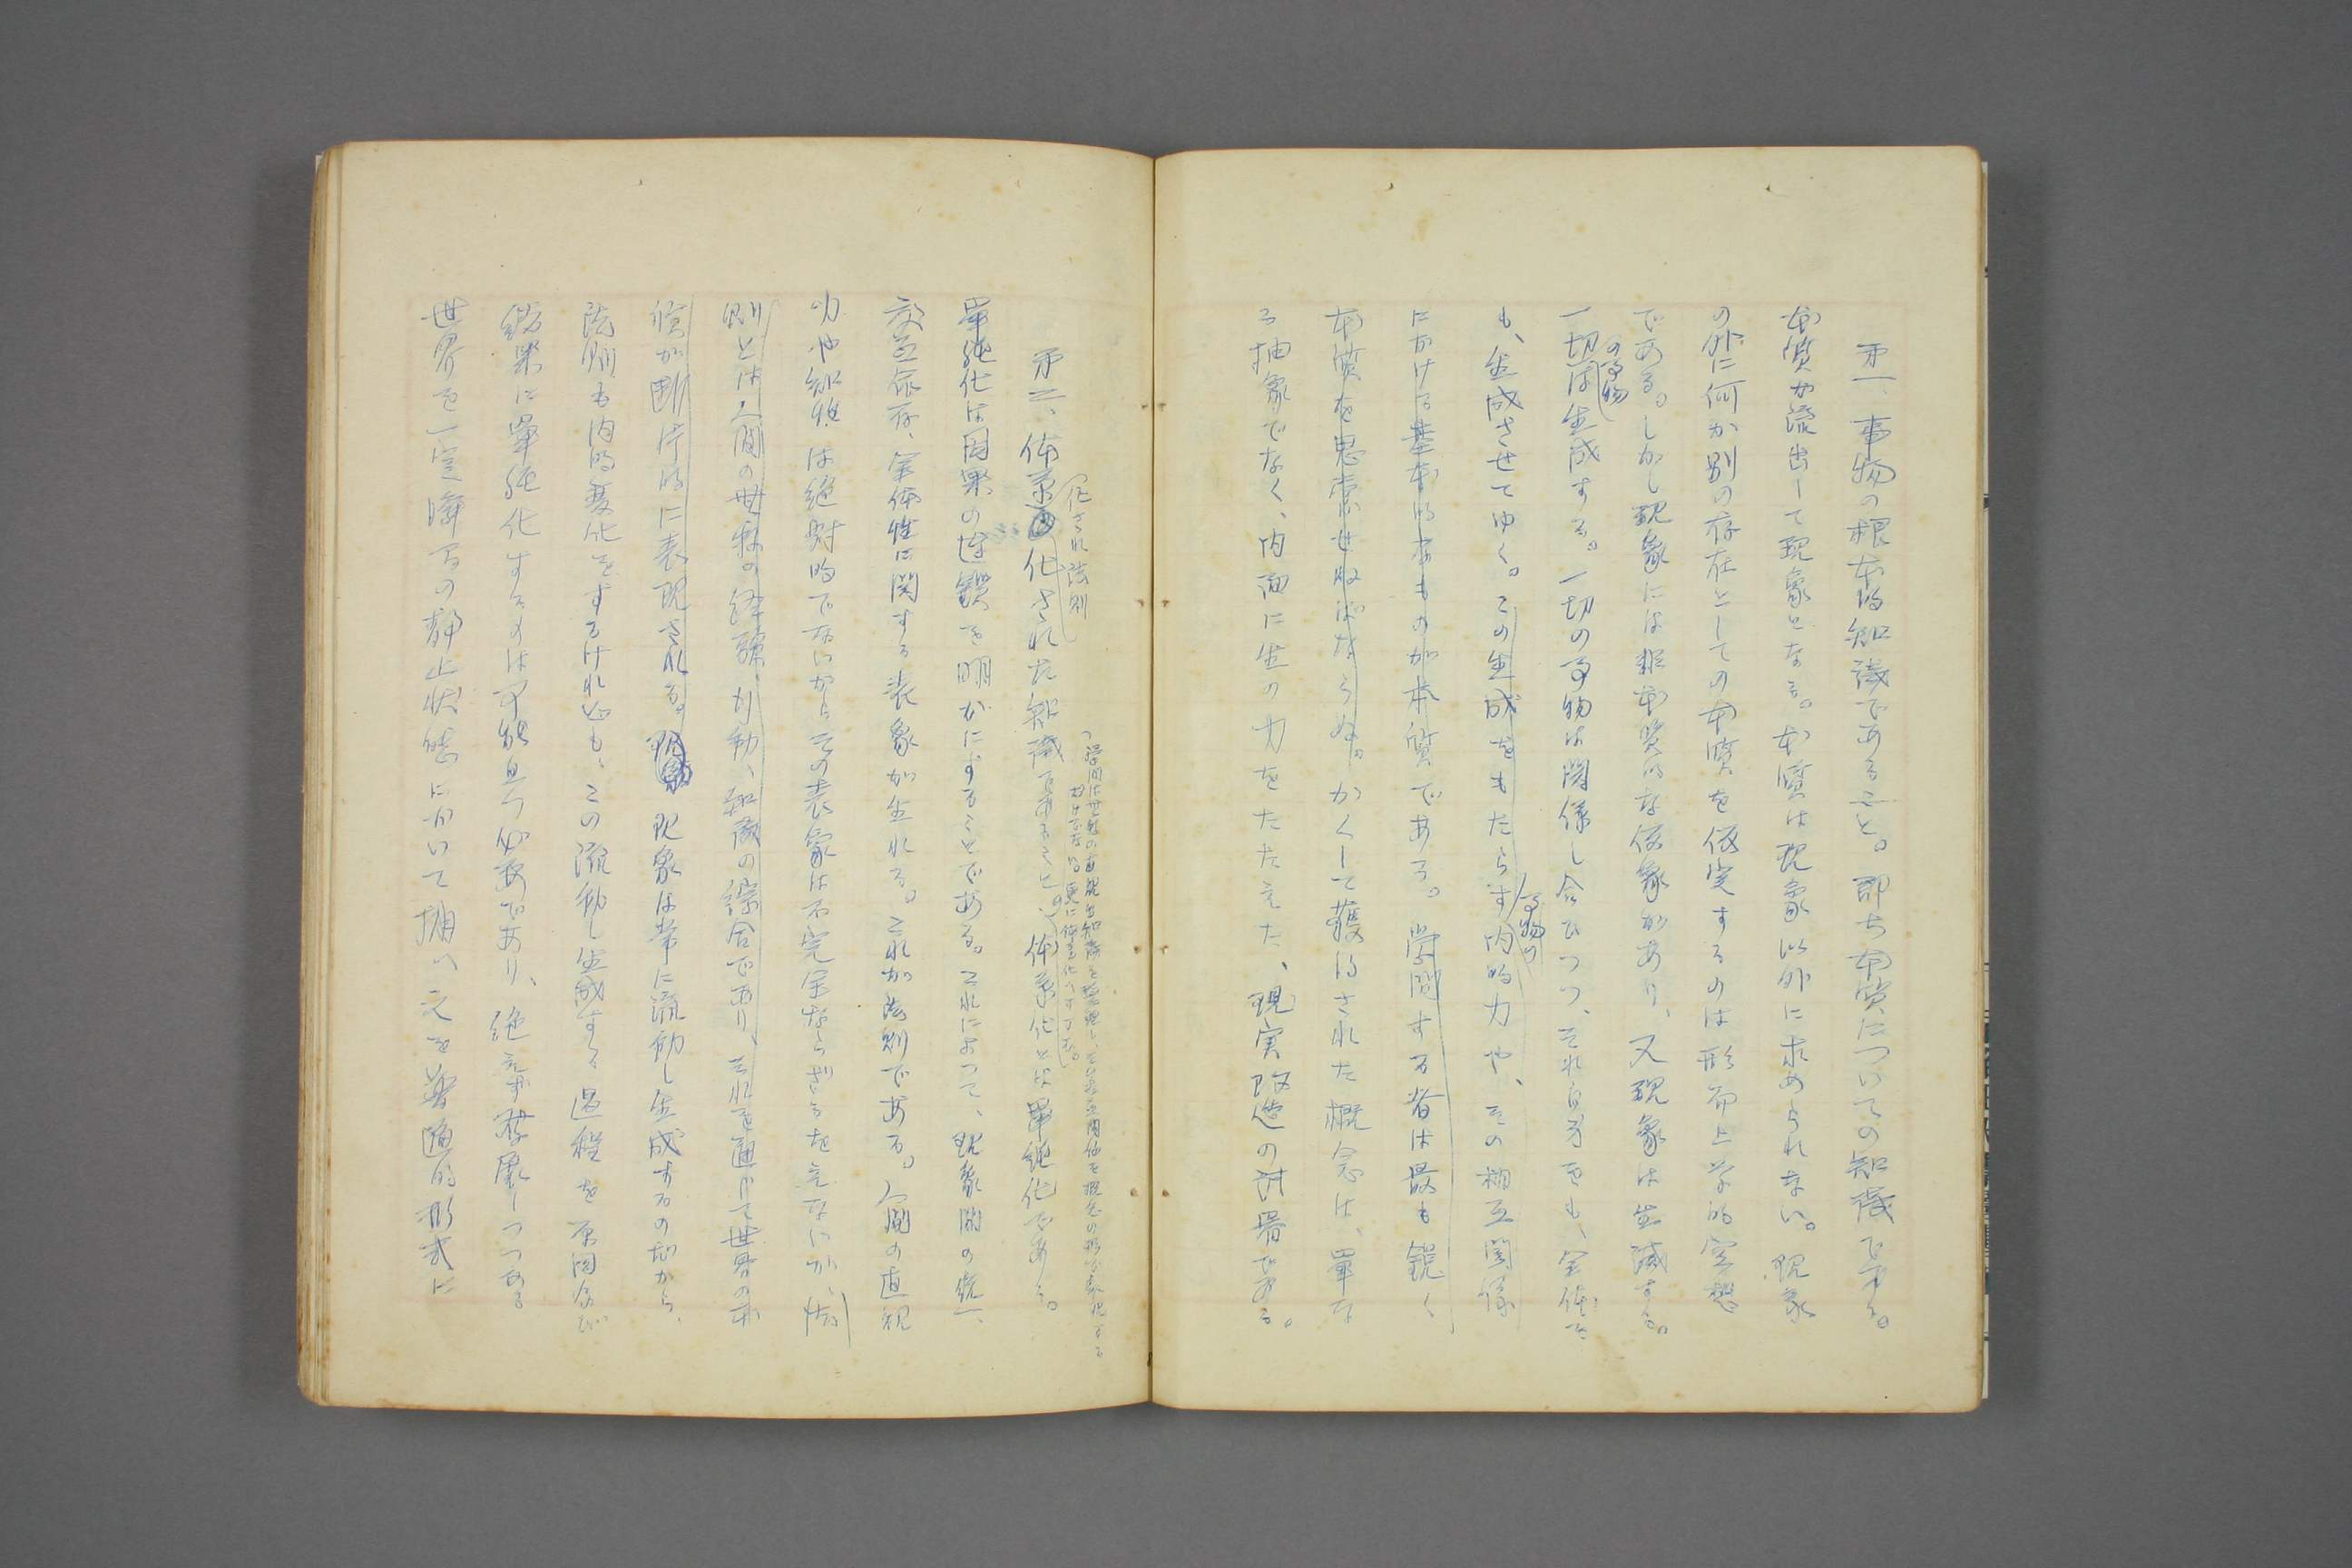 第一、事物の根本的知識であること。即ち本質についての知識である。
本質が流出して現象となる。本質は現象以外に求められない。現象
の外に何か別の存在としての本質を仮定するのは形而上学的空想
である。しかし現象には非本質的な仮象があり、又現象は生滅する。
一切の事物は生成する。一切の事物は関係し合ひつつ、それ自身をも、全体を
も、生成させてゆく。この生成をもたらす事物の内的力や、その相互関係
における基本的なものが本質である。学問する者は最も鋭く
本質を思索せねばならぬ。かくして獲得された概念は、単な
る抽象でなく、内面に生の力をたたえた、現実改造の武器である。
(学問は世界の直観的知識を整理し、その相互関係を概念の形で表現する
更に体系化へすすむ。
化され法則
第二、体系化された知識であること。体系化とは単純化である。
単純化は因果の連鎖を明かにすることである。これによつて、現象間の統一、
交互依存、全体性に関する表象が生れる。これが法則である。人間の直観
力や知性は絶対的でないからその表象は不完全ならざるを得ないが、法
則とは人間の無数の経験、行動、知識の綜合であり、それを通じて世界の本
質が断片的に表現される。現象は常に流動し生成するのだから、
法則も内的変化をするけれども、この流動し生成する過程を原因及び
結果に単純化するのは可能且つ必要であり、絶えず発展しつつある
世界を一定瞬間の静止状態において捕へ之を普遍的形式に